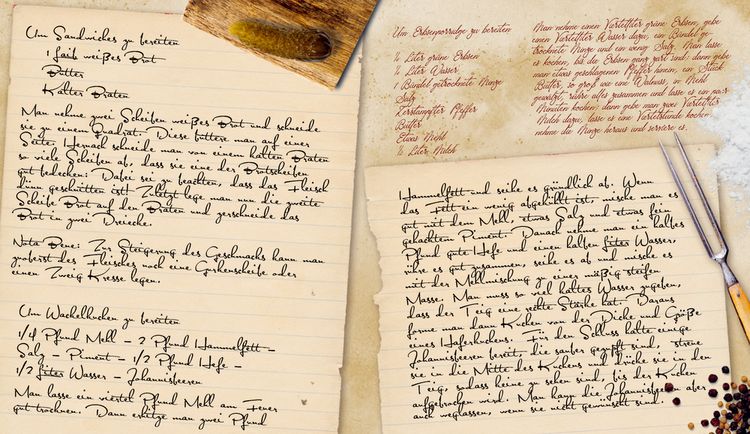 Um Sandwiches zu bereiten
1 Laib weißes Brot
Butter
Kalter Braten
Man nehme zwei Scheiben weißes Brot und schneide
sie zu einem Quadrat. Diese buttere man auf einer
Seite. Hernach schneide man von einem kalten Braten
so viele Scheiben ab, dass sie eine der Brotscheiben
gut bedecken. Dabei sei zu beachten, dass das Fleisch
dünn geschnitten ist! Zuletzt lege man nun die zweite
Scheibe Brot auf den Braten und zerschneide das
Brot in zwei Dreiecke.
Nota Bene: Zur Steigerung des Geschmacks kann man
zuoberst des Fleisches noch eine Gurkenscheibe oder
einen Zweig Kresse legen.
Um Wachelkuchen zu bereiten
1/4 Pfund Mehl – 2 Pfund Hammelfett –
Salz – Piment – 1/2 Pfund Hefe –
1/2 Liter Wasser – Johannisbeeren
Man lasse ein viertel Pfund Mehl am Feuer
gut trocknen. Dann erhitze man zwei Pfund
Um Erbsenporridge zu bereiten
¼ Liter grüne Erbsen
¼ Liter Wasser
1 Bündel getrocknete Minze
Salz
Zerstampfter Pfeffer
Butter
Etwas Mehl
¼ Liter Milch
Man nehme einen Viertelliter grüne Erbsen, gebe
einen Viertelliter Wasser dazu, ein Bündel ge-
trocknete Minze und ein wenig Salz. Man lasse
es kochen, bis die Erbsen ganz zart sind; dann gebe
man etwas geschlagenen Pfeffer hinein, ein Stück
Butter, so groß wie eine Walnuss, in Mehl
gewälzt, rühre alles zusammen und lasse es ein paar
Minuten kochen; dann gebe man zwei Viertelliter
Milch dazu, lasse es eine Viertelstunde kochen,
nehme die Minze heraus und serviere es.
Hammelfett und seihe es gründlich ab. Wenn
das Fett ein wenig abgekühlt ist, mische man es
gut mit dem Mehl, etwas Salz und etwas fein
gehacktem Piment. Danach nehme man ein halbes
Pfund gute Hefe und einen halben Liter Wasser,
rühre es gut zusammen, seihe es ab und mische es
mit der Mehlmischung zu einer mäßig steifen
Masse. Man muss so viel kaltes Wasser zugeben,
dass der Teig eine rechte Stärke hat. Daraus
forme man dann Kuchen von der Dicke und Größe
eines Haferkuchens. Für den Schluss halte einige
Johannisbeeren bereit, die sauber gezupft sind, streue
sie in die Mitte des Kuchens und drücke sie in den
Teig, sodass keine zu sehen sind, bis der Kuchen
aufgebrochen wird. Man kann die Johannisbeeren aber
auch weglassen, wenn sie nicht gewünscht sind.